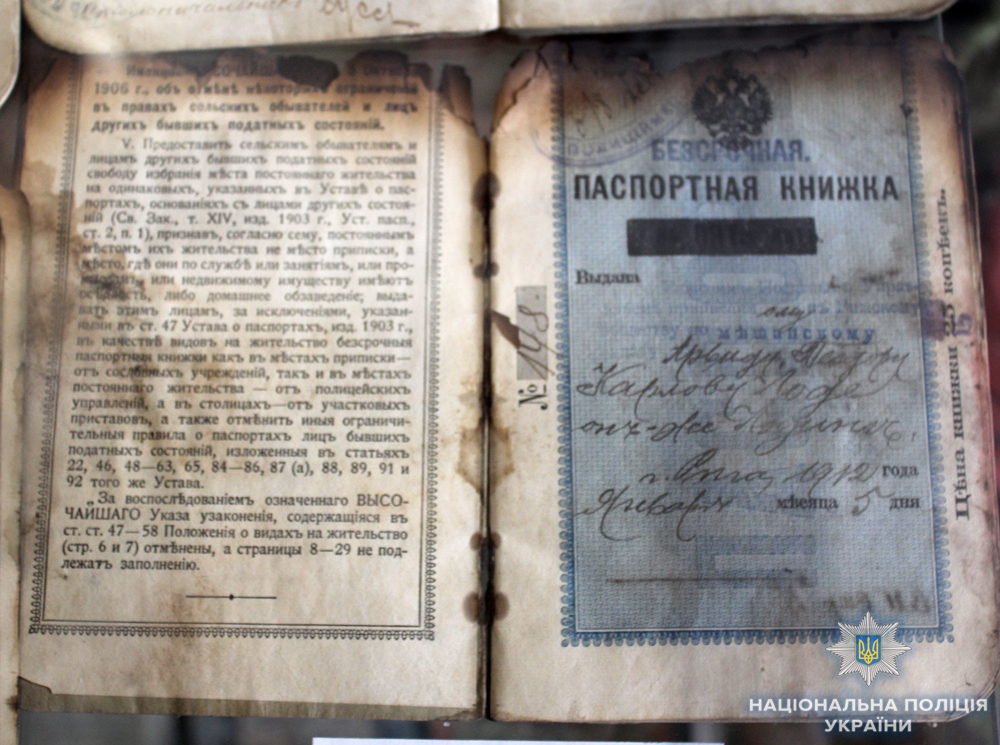 1906 г., объ отмѣнѣ нѣкоторыхъ ограниченій
въ правахъ сельскихъ обывателей и лицъ
другихъ бывшихъ податныхъ состояній.
V. Предоставить сельскимъ обывателямъ и
лицамъ другихъ бывшихъ податныхъ состояній
свободу избранія мѣста постояннаго жительства
на одинаковыхъ, указанныхъ въ Уставѣ о пас-
портахъ, основаніяхъ съ лицами другихъ состоя-
ній (Св. Зак., т. XIV, изд. 1903 г., Уст. пасп.,
ст. 2, п. 1), признавъ, согласно сему, постояннымъ
мѣстомъ ихъ жительства не мѣсто приписки, а
мѣсто, гдѣ они по службѣ или занятіямъ, или про-
мысламъ, или недвижимому имуществу имѣютъ
осѣдлость, либо домашнее обзаведеніе; выда-
вать этимъ лицамъ, за исключеніями, указан-
ными въ ст. 47 Устава о паспортахъ, изд. 1903 г.,
въ качествѣ видовъ на жительство безсрочныя
паспортныя книжки какъ въ мѣстахъ приписки—
отъ сословныхъ учрежденій, такъ и въ мѣстахъ
постояннаго жительства — отъ полицейскихъ
управленій, а въ столицахъ—отъ участковыхъ
приставовъ, а также отмѣнить иныя ограничи-
тельныя правила о паспортахъ лицъ бывшихъ
податныхъ состояній, изложенныя въ статьяхъ
22, 46, 48—63, 65, 84—86, 87 (а), 88, 89, 91 и
92 того же Устава.
„За воспослѣдованіемъ означеннаго ВЫСО-
ЧАЙШАГО Указа узаконенія, содержащіяся въ
ст. ст. 47—58 Положенія о видахъ на жительство
(стр. 6 и 7) отмѣнены, а страницы 8—29 не под-
лежатъ заполненію.
БЕЗСРОЧНАЯ.
ПАСПОРТНАЯ КНИЖКА
Выдана
мѣщанскому
Карлову
г. Рига 1912 года
Января мѣсяца 5 дня
№ 148.
Цѣна книжки 25 копѣекъ.
НАЦІОНАЛЬНА ПОЛІЦІЯ
УКРАЇНИ